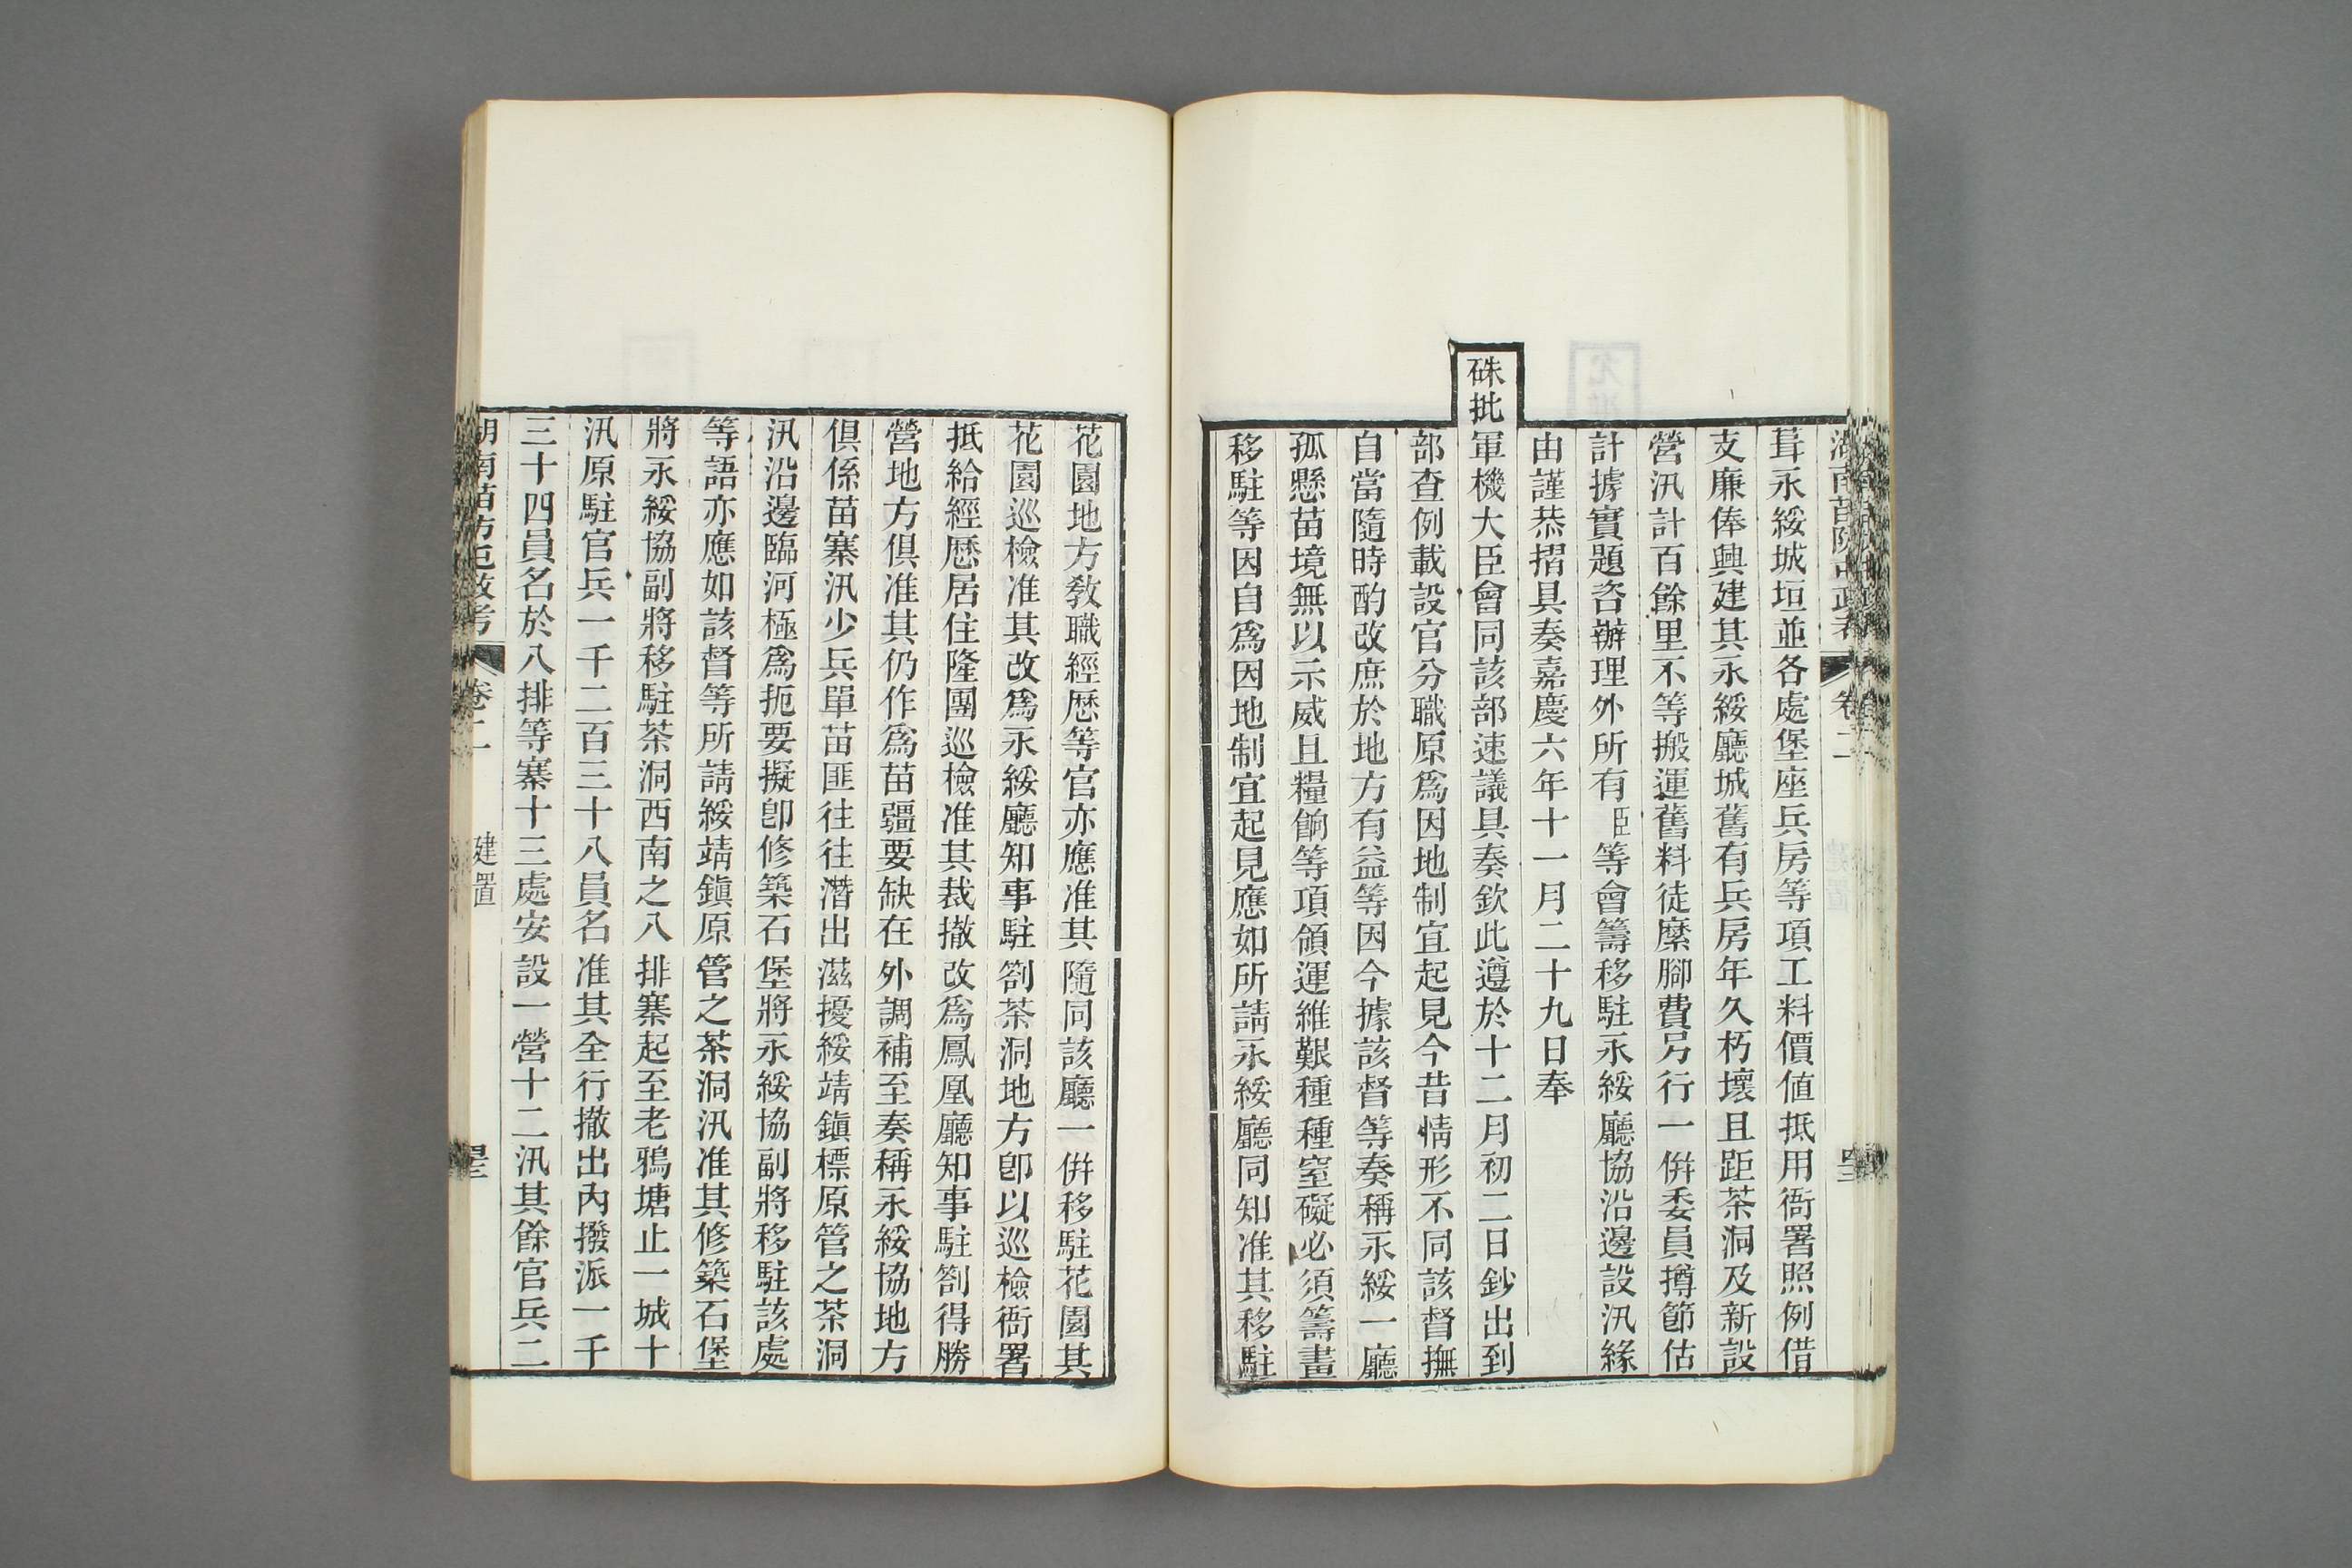 葺永綏城垣並各處堡座兵房等項工料價値抵用衙署照例借
支廉俸興建其永綏廳城舊有兵房年久朽壞且距茶洞及新設
營汛計百餘里不等搬運舊料徒縻腳費另行一倂委員撙節估
計據實題咨辦理外所有臣等會籌移駐永綏廳協沿邊設汛緣
由謹恭摺具奏嘉慶六年十一月二十九日奉
硃批軍機大臣會同該部速議具奏欽此遵於十二月初二日鈔出到
部查例載設官分職原爲因地制宜起見今昔情形不同該督撫
自當隨時酌改庶於地方有益等因今據該督等奏稱永綏一廳
孤懸苗境無以示威且糧餉等項領運維艱種種窒礙必須籌畫
移駐等因自爲因地制宜起見應如所請永綏廳同知准其移駐
花園地方教職經歷等官亦應准其隨同該廳一倂移駐花園其
花園巡檢准其改爲永綏廳知事駐劄茶洞地方卽以巡檢衙署
抵給經歷居住隆團巡檢准其裁撤改爲鳳凰廳知事駐劄得勝
營地方俱准其仍作爲苗疆要缺在外調補至奏稱永綏協地方
俱係苗寨汛少兵單苗匪往往潛出滋擾綏靖鎭標原管之茶洞
汛沿邊臨河極爲扼要擬卽修築石堡將永綏協副將移駐該處
等語亦應如該督等所請綏靖鎭原管之茶洞汛准其修築石堡
將永綏協副將移駐茶洞西南之八排寨起至老鴉塘止一城十
汛原駐官兵一千二百三十八員名准其全行撤出內撥派一千
三十四員名於八排等寨十三處安設一營十二汛其餘官兵二
卷二
建置